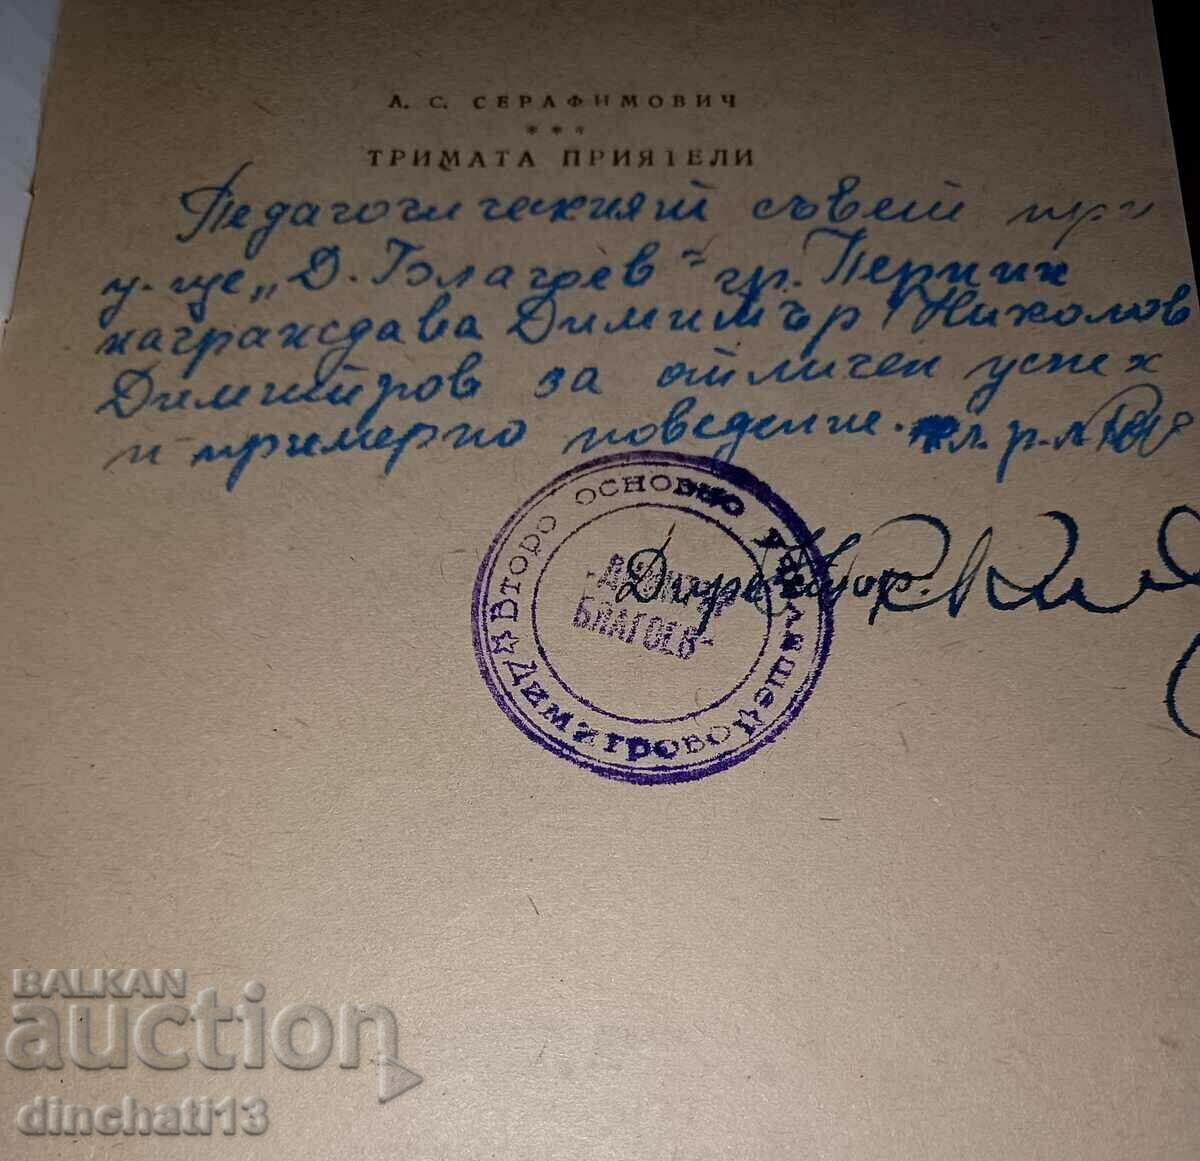 А. С. СЕРАФИМОВИЧ
* * *
ТРИМАТА ПРИЯТЕЛИ
Педагогическият съвет при
у-ще „Д. Благоев" гр. Перник
награждава Димитър Николов
Димитров за отличен успех
и примерно поведение. кл. р-л
Директор:
Второ основно училище
Димитровоци
-ДИМИТЪР
БЛАГОЕВ-
BALKAN
auction
dinchati13